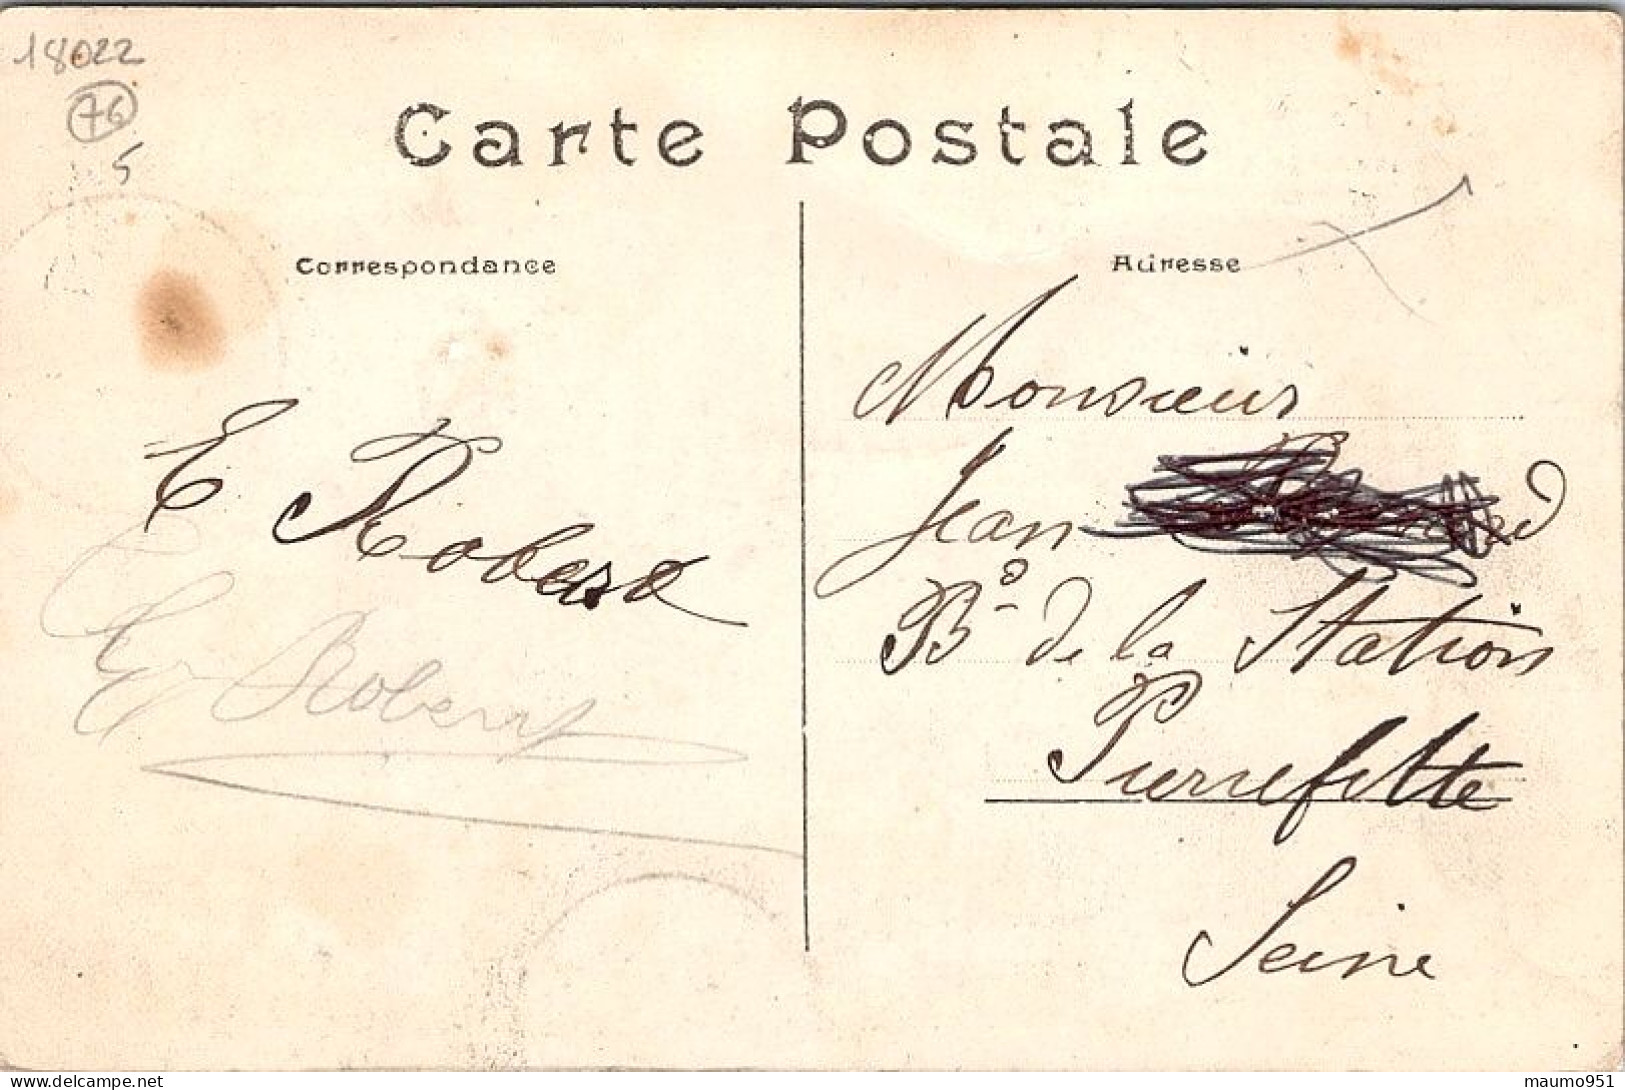 18022
76
5
Carte Postale
Correspondance
Adresse
E Robert
E Robert
Monsieur
Jean
Bd de la Station
Pierrefitte
Seine
maumo951